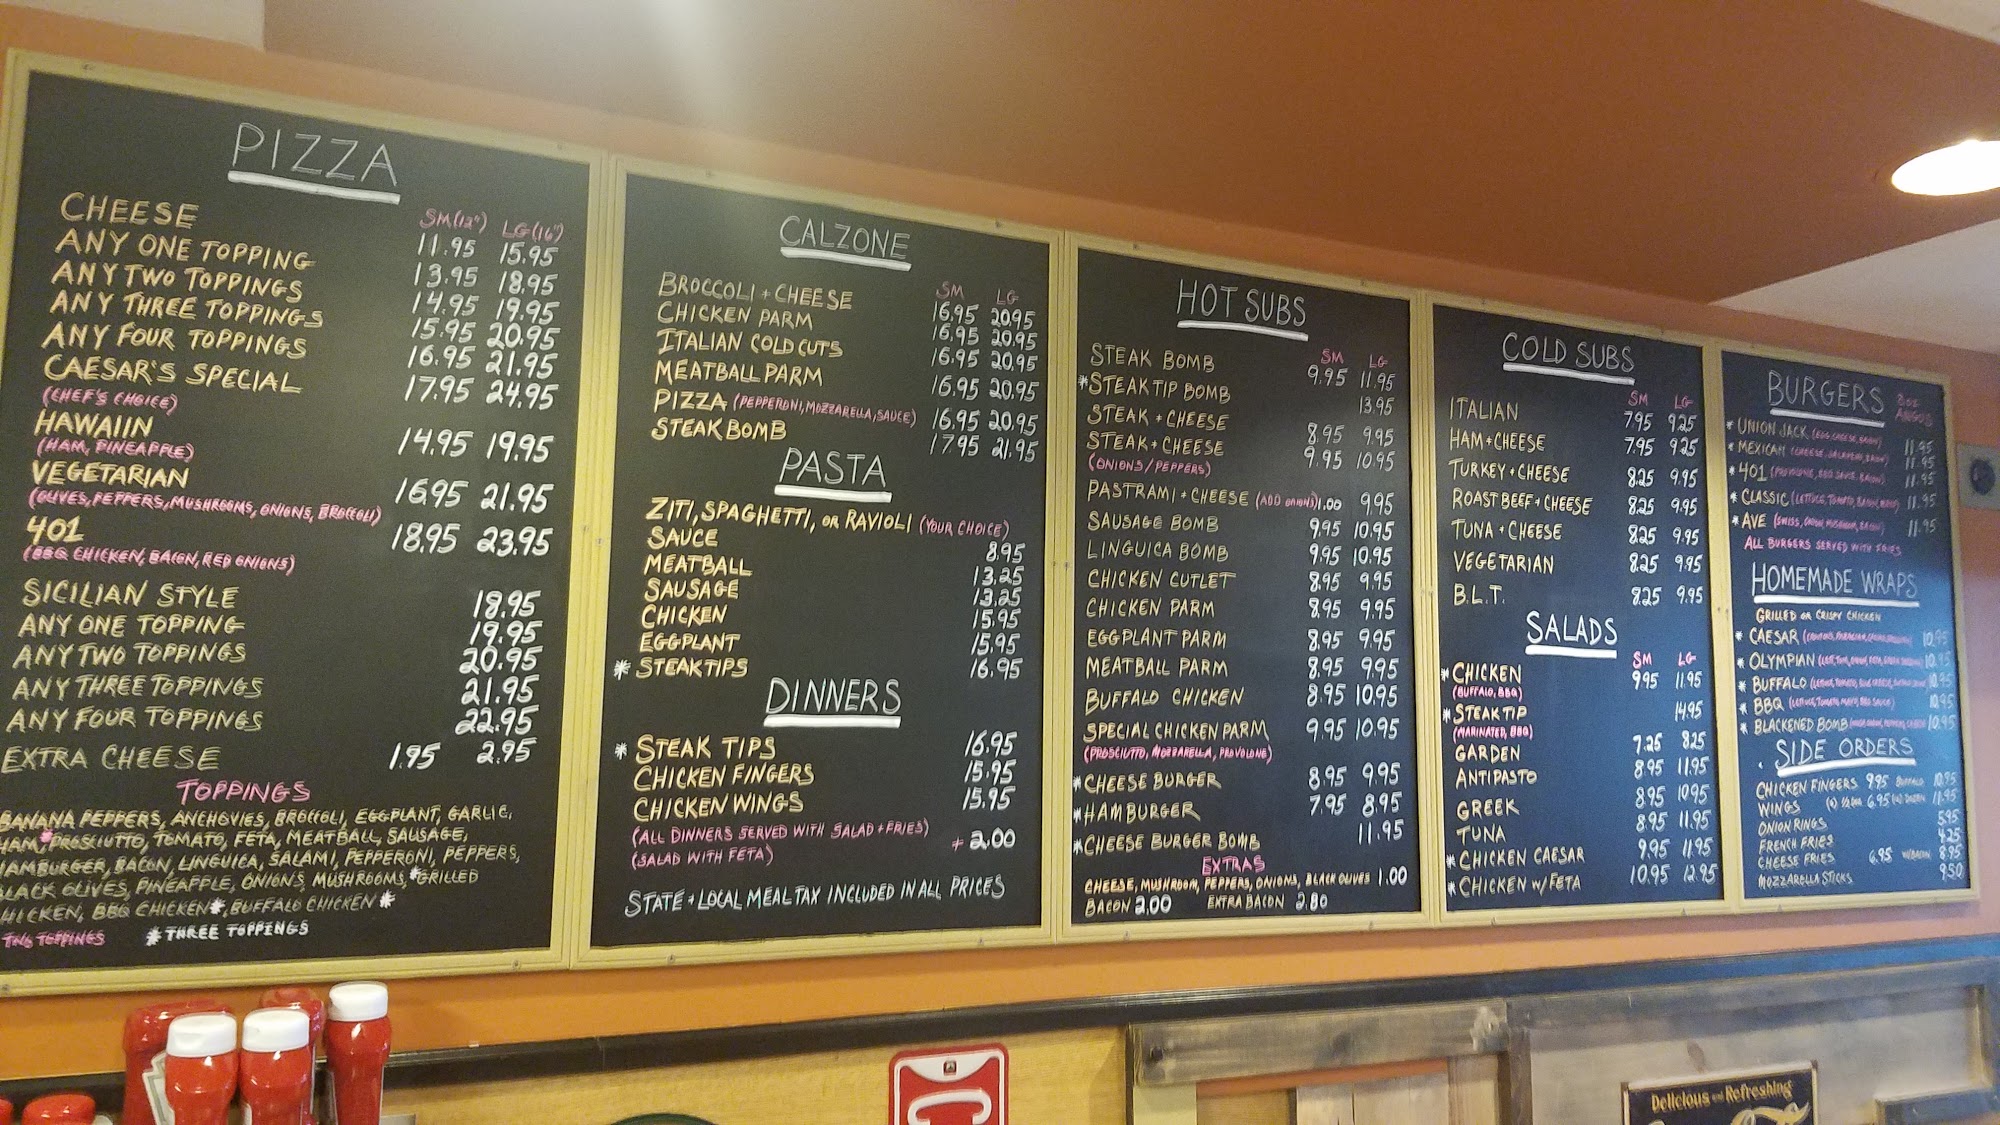 PIZZA
SM(12") LG(16")
CHEESE 11.95 15.95
ANY ONE TOPPING 13.95 18.95
ANY TWO TOPPINGS 14.95 19.95
ANY THREE TOPPINGS 15.95 20.95
ANY FOUR TOPPINGS 16.95 21.95
CAESAR'S SPECIAL 17.95 24.95
(CHEF'S CHOICE)
HAWAIIN 14.95 19.95
(HAM, PINEAPPLE)
VEGETARIAN 16.95 21.95
(OLIVES, PEPPERS, MUSHROOMS, ONIONS, BROCCOLI)
401 18.95 23.95
(BBQ CHICKEN, BACON, RED ONIONS)
SICILIAN STYLE 18.95
ANY ONE TOPPING 19.95
ANY TWO TOPPINGS 20.95
ANY THREE TOPPINGS 21.95
ANY FOUR TOPPINGS 22.95
EXTRA CHEESE 1.95 2.95
TOPPINGS
BANANA PEPPERS, ANCHOVIES, BROCCOLI, EGGPLANT, GARLIC,
HAM, *PROSCIUTTO, TOMATO, FETA, MEATBALL, SAUSAGE,
HAMBURGER, BACON, LINGUICA, SALAMI, PEPPERONI, PEPPERS,
BLACK OLIVES, PINEAPPLE, ONIONS, MUSHROOMS, *GRILLED
CHICKEN, BBQ CHICKEN*, BUFFALO CHICKEN*
TWO TOPPINGS *THREE TOPPINGS
CALZONE
SM LG
BROCCOLI + CHEESE 16.95 20.95
CHICKEN PARM 16.95 20.95
ITALIAN COLD CUTS 16.95 20.95
MEATBALL PARM 16.95 20.95
PIZZA (PEPPERONI, MOZZARELLA, SAUCE) 16.95 20.95
STEAK BOMB 17.95 21.95
PASTA
ZITI, SPAGHETTI, OR RAVIOLI (YOUR CHOICE)
SAUCE 8.95
MEATBALL 13.25
SAUSAGE 13.25
CHICKEN 15.95
EGGPLANT 15.95
* STEAK TIPS 16.95
DINNERS
* STEAK TIPS 16.95
CHICKEN FINGERS 15.95
CHICKEN WINGS 15.95
(ALL DINNERS SERVED WITH SALAD + FRIES)
(SALAD WITH FETA) + 2.00
STATE + LOCAL MEAL TAX INCLUDED IN ALL PRICES
HOT SUBS
SM LG
STEAK BOMB 9.95 11.95
*STEAK TIP BOMB 13.95
STEAK + CHEESE 8.95 9.95
STEAK + CHEESE 9.95 10.95
(ONIONS/PEPPERS)
PASTRAMI + CHEESE (ADD ONIONS) 1.00 9.95
SAUSAGE BOMB 9.95 10.95
LINGUICA BOMB 9.95 10.95
CHICKEN CUTLET 8.95 9.95
CHICKEN PARM 8.95 9.95
EGGPLANT PARM 8.95 9.95
MEATBALL PARM 8.95 9.95
BUFFALO CHICKEN 8.95 10.95
SPECIAL CHICKEN PARM 9.95 10.95
(PROSCIUTTO, MOZZARELLA, PROVOLONE)
*CHEESE BURGER 8.95 9.95
*HAMBURGER 7.95 8.95
*CHEESE BURGER BOMB 11.95
EXTRAS
CHEESE, MUSHROOM, PEPPERS, ONIONS, BLACK OLIVES 1.00
BACON 2.00 EXTRA BACON 2.80
COLD SUBS
SM LG
ITALIAN 7.95 9.25
HAM + CHEESE 7.95 9.25
TURKEY + CHEESE 8.25 9.95
ROAST BEEF + CHEESE 8.25 9.95
TUNA + CHEESE 8.25 9.95
VEGETARIAN 8.25 9.95
B.L.T. 8.25 9.95
SALADS
SM LG
*CHICKEN 9.95 11.95
(BUFFALO, BBQ)
*STEAK TIP 14.95
(MARINATED, BBQ)
GARDEN 7.25 8.25
ANTIPASTO 8.95 11.95
GREEK 8.95 10.95
TUNA 8.95 11.95
*CHICKEN CAESAR 9.95 11.95
*CHICKEN W/FETA 10.95 12.95
BURGERS 8oz ANGUS
* UNION JACK (EGG, CHEESE, BACON) 11.95
* MEXICAN (CHEESE, JALAPENO, BACON) 11.95
* 401 (PROVOLONE, BBQ SAUCE, BACON) 11.95
* CLASSIC (LETTUCE, TOMATO, BACON, MAYO) 11.95
* AVE (SWISS, ONION, MUSHROOM, BACON) 11.95
ALL BURGERS SERVED WITH FRIES
HOMEMADE WRAPS
GRILLED OR CRISPY CHICKEN
* CAESAR 10.95
* OLYMPIAN 10.95
* BUFFALO 10.95
* BBQ (LETTUCE, TOMATO, MAYO, BBQ SAUCE) 10.95
* BLACKENED BOMB 10.95
SIDE ORDERS
CHICKEN FINGERS 9.95 BUFFALO 10.95
WINGS 6.95 11.95
ONION RINGS 5.95
FRENCH FRIES 4.25
CHEESE FRIES 6.95 W/BACON 8.95
MOZZARELLA STICKS 9.50
Delicious and Refreshing